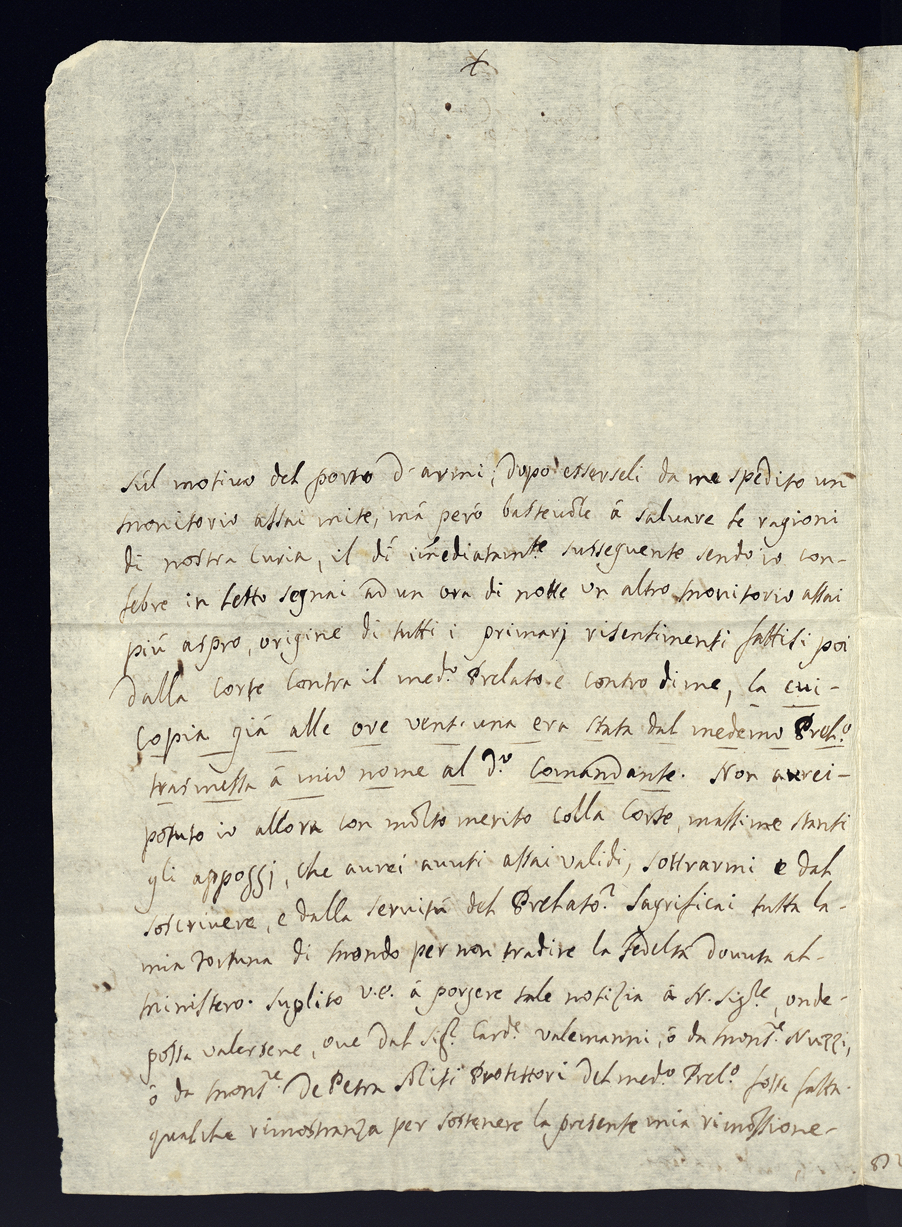 +
Sul motivo del porto d'armi, dopo esserseli da me spedito un
monitorio assai mite, mà però bastevole à salvare le ragioni
di nostra Curia, il dì im̃ediatamte susseguente sendo io con
febre in letto segnai ad un ora di notte un altro monitorio assai
più aspro, origine di tutti i primarj risentimenti fattisi poi
dalla Corte contra il med.o Prelato e contro di me, la cui-
copia già alle ore vent-una era stata dal medemo Prel.o
trasmessa à mio nome al d.o Comandante. Non avrei-
potuto io allora con molto merito colla Corte, massime stanti
gli appoggj, che avrei avuti assai validi, sottrarmi e dal
soscrivere, e dalla servitù del Prelato? Sagrificai tutta la-
mia fortuna di mondo per non tradire la fedeltà dovuta al-
ministero. Suplico V.E. à porgere tale notizia à N. Sig.re, onde-
possa valersene, ove dal Sig.r Card.e Valemanni, ò da Mons.re Nuzzi,
ò da Mons.re De Petra soliti Protettori del med.o Prel.o fosse fatta
qualche rimostranza per sostenere la presente mia rimossione-